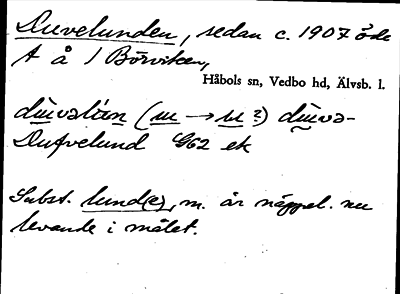 Duvelunden, sedan c. 1907 öde
t å / Börviken,
Håbols sn, Vedbo hd, Älvsb. l.
dɯvəlɯn (ɯ → u ?) dɯvə-
Dufvelund G62 ek
Subst. lund(e), m. är näppel. nu
levande i målet.